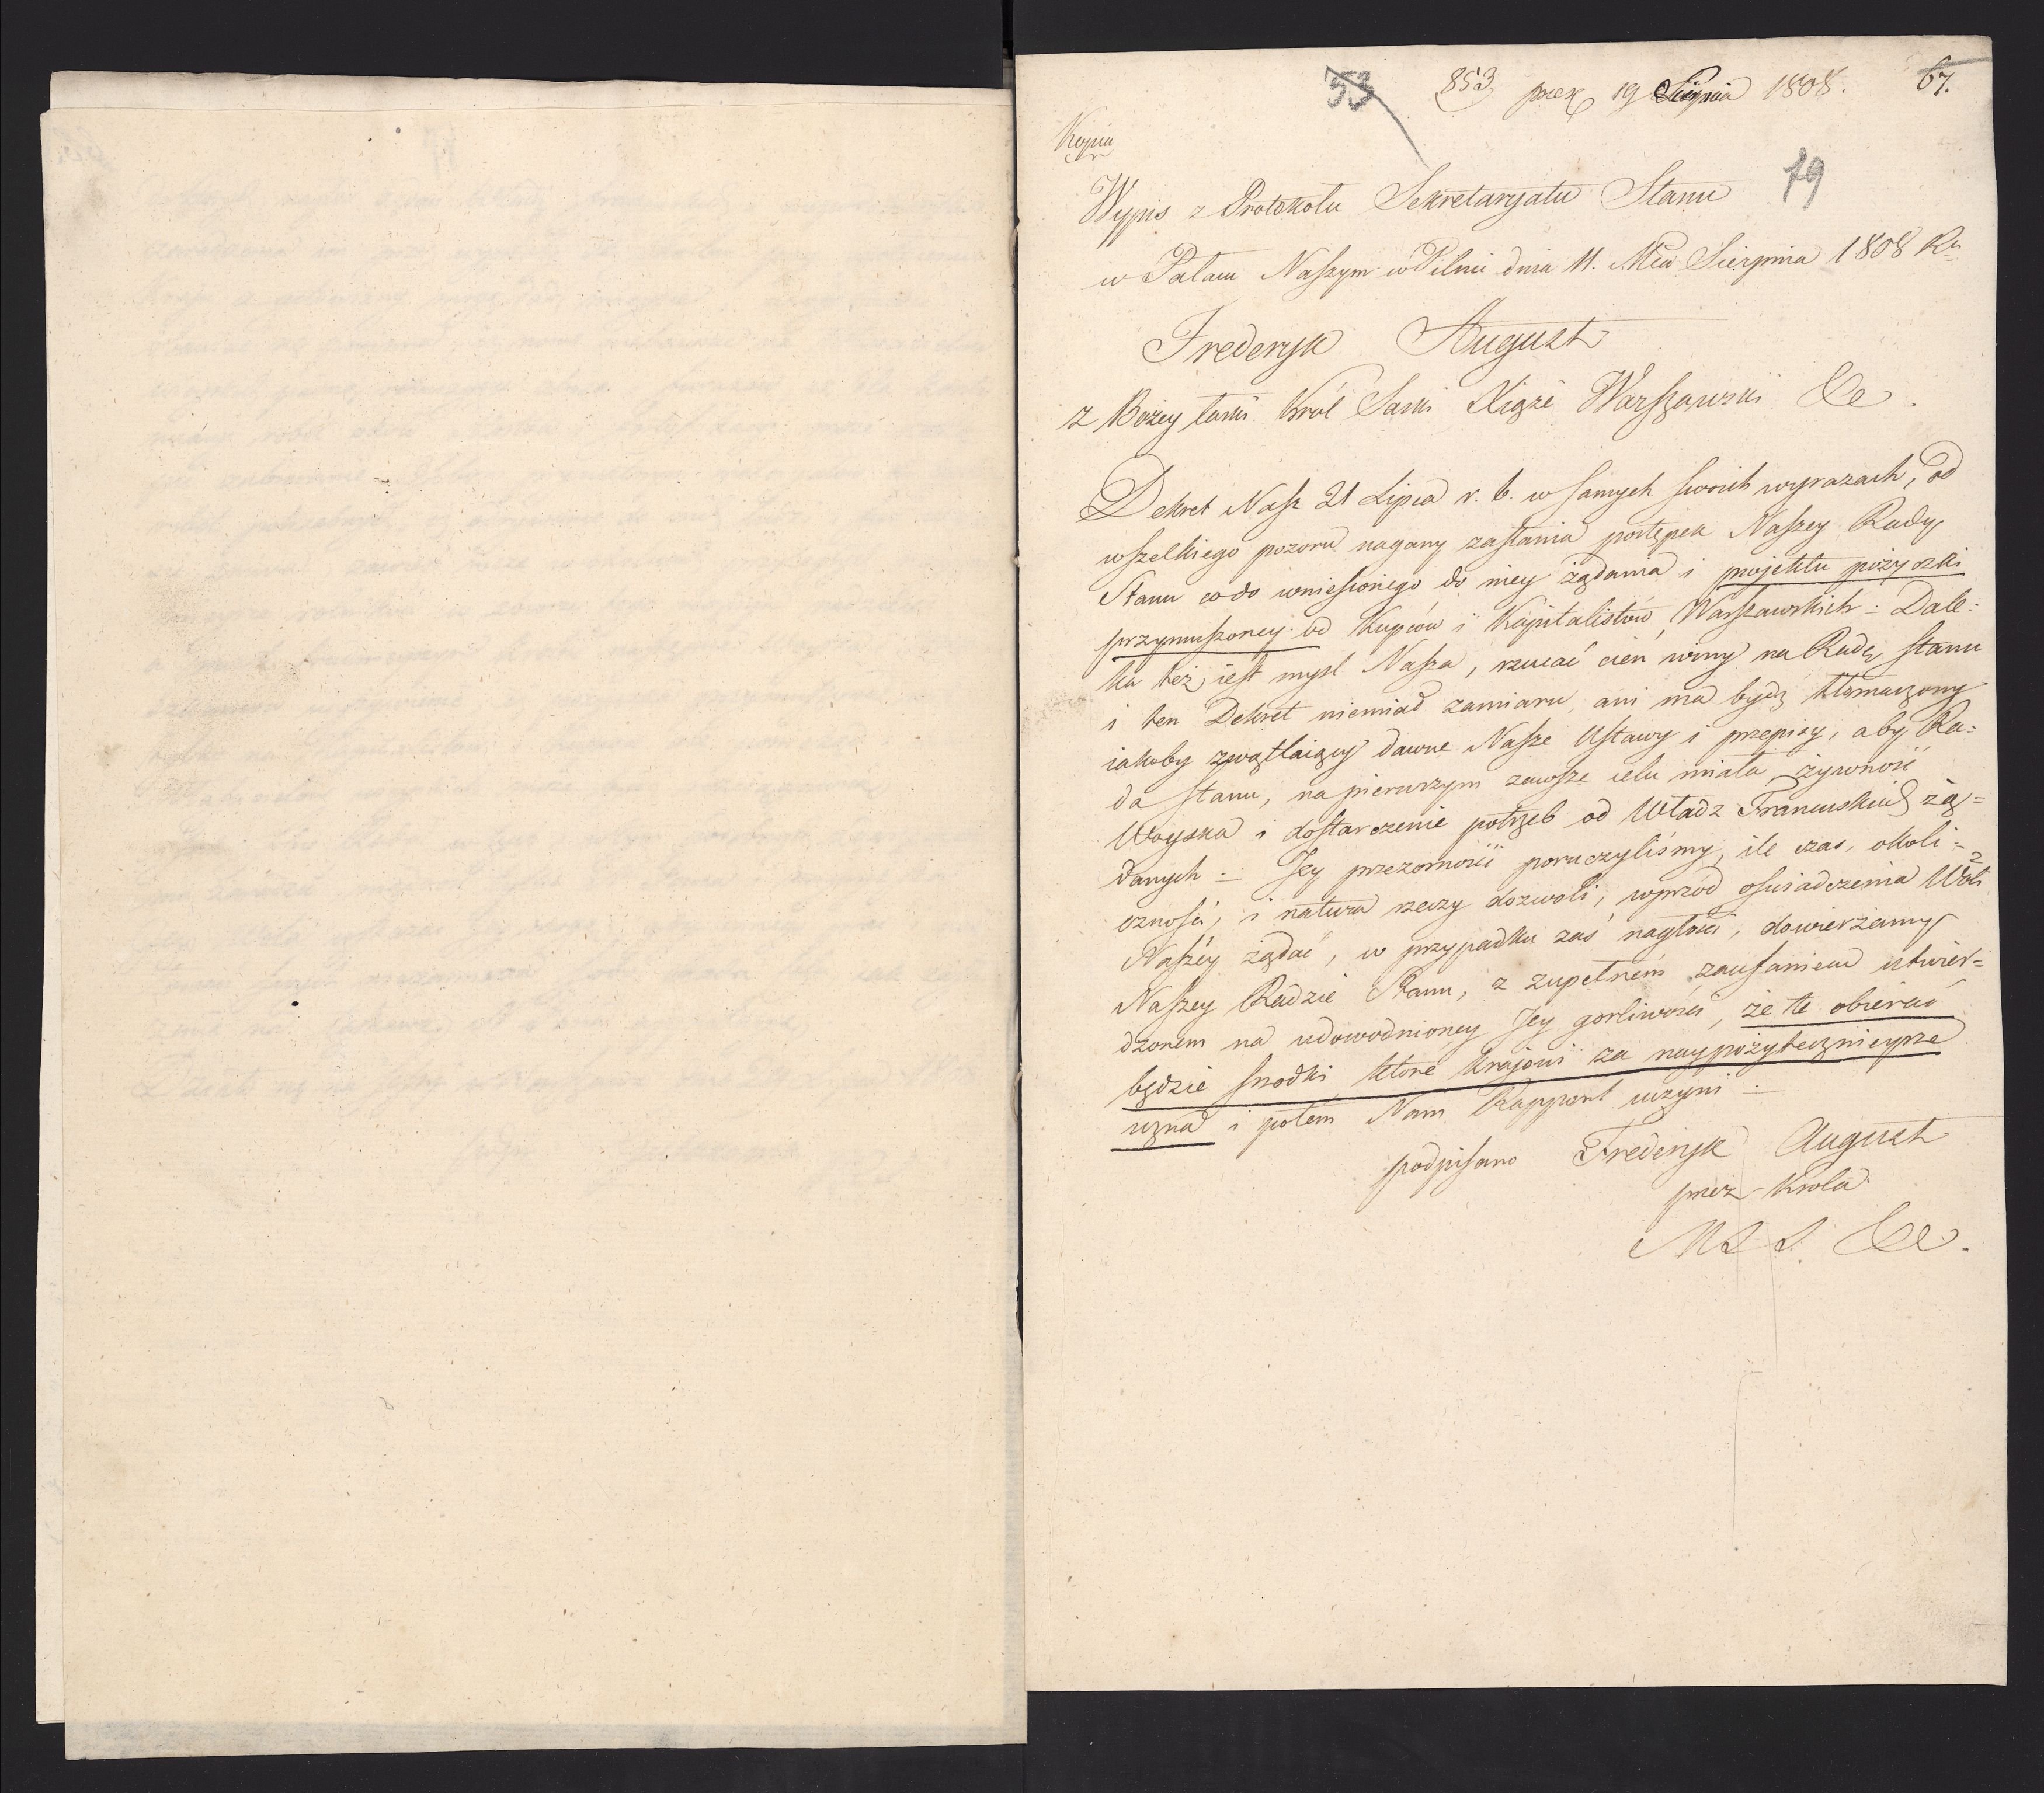 53 853 prez 19 Sierpnia 1808. 67.
Kopia
79
Wypis z Protokołu Sekretaryatu Stanu
w Pałacu Naszym w Pilnic dnia 11. Mca Sierpnia 1808 Ru
Frederyk August
z Bożey łaski Król Saski Xiąże Warszawski &c.
Dekret Nasz 21 Lipca r. b. w samych swoich wyrazach, od
wszelkiego pozoru nagany zasłania postępek Naszey Rady
Stanu co do wniesionego do niey żądania i projektu pożyczki
przymuszoney od Kupców i Kapitalistów Warszawskich: Dale=
ka też iest mysl Nasza, rzucać cien winy na Radę stanu
i ten Dekret niemiał zamiaru, ani ma bydź tłomaczony
iakoby zwątlaiący dawne Nasze Ustawy i przepisy, aby Ra=
da stanu, na pierwszym zawsze celu miała żywność
Woyska i dostarczenie potrzeb od Władz Francuskich żą=
danych – Jey przezorności poruczyliśmy, ile czas, okoli=
czność, i natura rzeczy dozwoli, wprzód oświadczenia Woli
Naszéy żądać, w przypadku zaś nagłości, dowierzamy
Naszey Radzie Stanu, z zupełném zaufaniem utwier=
dzonem na udowodnioney Jey gorliwości, że te obierać
będzie srodki które krajowi za naypożytecznieysze
uzna i potém Nam Rapport uczyni –
podpisano Frederyk August
przez Krola
M S S. &c.